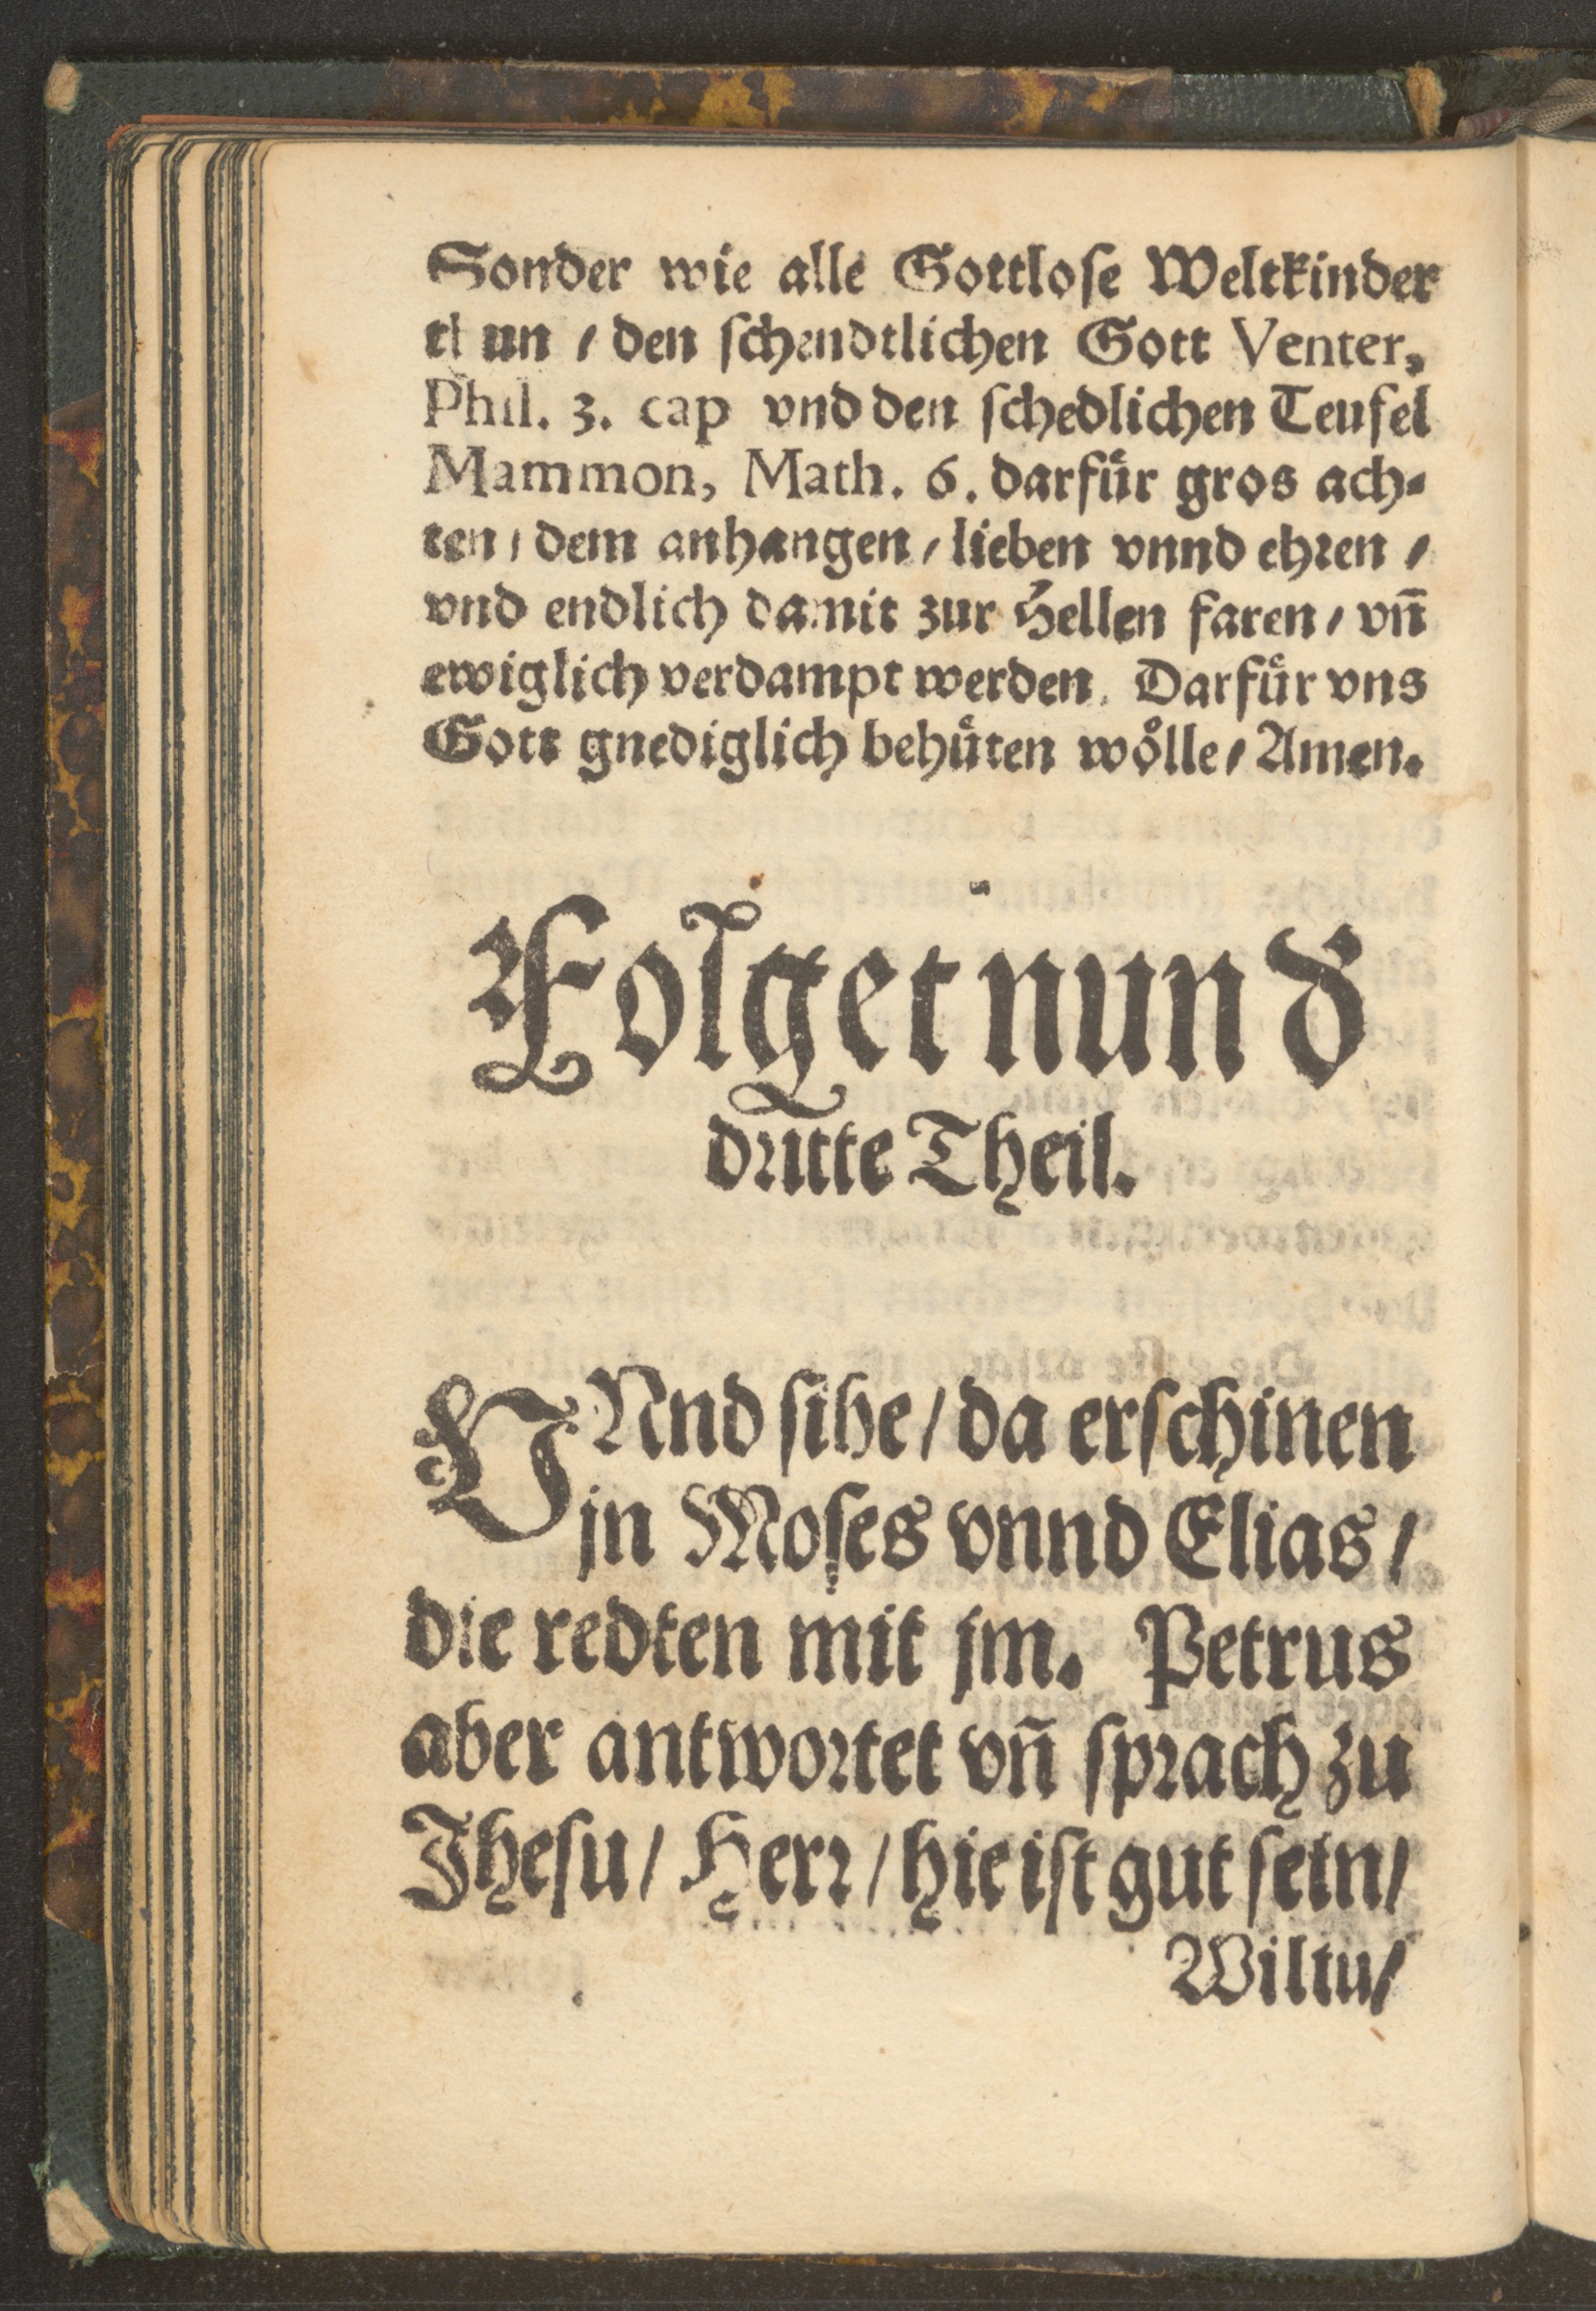 Sonder wie alle Gottloſe Weltkinder
thun / den ſchendtlichen Gott Venter,
Phil. 3. cap vnd den ſchedlichen Teufel
Mammon, Math. 6. darfuͤr gros ach⸗
ten / dem anhangen / lieben vnnd ehꝛen /
vnd endlich damit zur Hellen faren / vñ
ewiglich verdampt werden. Darfuͤr vns
Gott gnediglich behuͤten woͤlle / Amen.
Folget nun d
dꝛitte Theil.
VNnd ſihe / da erſchinen
jn Moſes vnnd Elias /
die redten mit jm. Petrus
aber antwoꝛtet vñ ſpꝛach zu
Jheſu / Herꝛ / hie iſt gut ſein /
Wiltu /